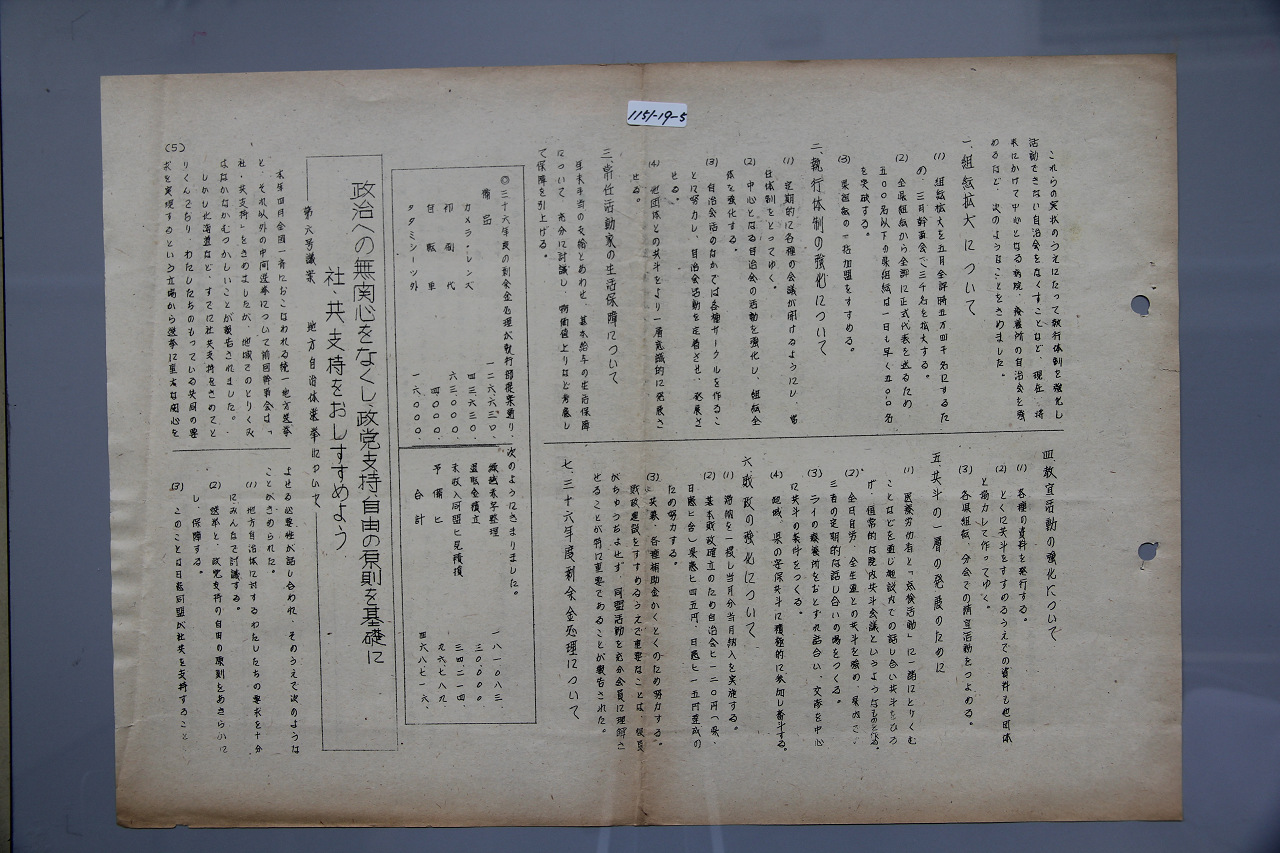 1151-19-5
これらの実状のうえにたって執行体制を強化し
活動できない自治会をなくすことなど、現在、拷
末にかけて中心となる病院、療養所の自治会を強
めるなど、次のようなことをきめました。
一、組織拡大について
(1) 組織拡大を五月全評時五万四千名にするた
の、三月幹事会で三千名を拡大する。
(2) 全県組織から全評に正式代表を送るため
五〇〇名以下の県組織は一日も早く五〇〇名
を突破する。
(3) 県組織の一括加盟をすすめる。
二、執行体制の強化について
(1) 定期的に各種の会議が開けるようにし、常
任体制をとってゆく。
(2) 中心となる自治会の活動を強化し、組織全
体を強化する。
(3) 自治会活のなかでは各種サークルを作るこ
とに努力し、自治会活動を定着させ、発展さ
せる。
(4) 他団体との共斗をより一層意識的に発展さ
せる。
三、常任活動家の生活保障について
年末手当の支給とあわせ、基本給与の生活保障
について、充分に討議し、物価値上りなど考慮し
て保障を引上げる。
四、教宣活動の強化について
(1) 各種の資料を発行する。
(2) とくに共斗をすすめるうえでの資料も他団体
と協力して作ってゆく。
(3) 各県組織、分会での情宣活動をつよめる。
五、共斗の一層の発展のために
(1) 医療労働者と「点検活動」に一諸にとりくむ
ことなどを通じ施設内での話し合い共斗をひろ
げ、恒常的な院内共斗会議というようなものを作る。
(2) 全日自労、全生連との共斗を強め、県内で
三者の定期的な話し合いの場をつくる。
(3) ライの療養所をおとずれ話合い、文隊を中心
に共斗の条件をつくる。
(4) 地域、県の安保共斗に積極的に参加し奮斗する。
六、財政の強化について
(1) 滞納を一掃し当月分当月納入を実施する。
(2) 基本財政確立のため自治会ヒ一二〇円(県、
日患ヒ含)県患ヒ四五円、日患ヒ一五円達成の
ため努力する。
(3) 共募、各種補助金かくとくのため努力する。
財政建設をすすめるうえで重要なことは、役員
がちゅうちょせず、同盟活動を充分会員に理解さ
せることが特に重要であることが報告された。
七、三十六年度剰余金処理について
◎三十六年度の剰余金処理が執行部提案通り、次のようにきまりました。
備品 一二六、六三〇、
カメラ・レンズ 四三、六三〇
印刷代 六三、〇〇〇、
自転車 四、〇〇〇、
タタミシーツ外 一六、〇〇〇、
繰越赤字整理 一八一、〇八三、
退職金積立 三〇、〇〇〇
未収入同盟ヒ見積損 三四、二一四、
予備ヒ 九六、七八九
合計 四六八、七一六、
政治への無関心をなくし、政党支持、自由の原則を基礎に
社、共支持をおしすすめよう
――第六号議案 地方自治体選挙について――
本年四月全国一斉におこなわれる統一地方選挙
と、それ以外の中間選挙について前回幹事会は「
社・共支持」をきめましたが、地域でのとりくみ
はなかなかむつかしいことが報告されました。
しかし北海道など、すでに社共支持をきめてと
りくんでおり、わたしたちのもっている共同の要
求を実現するという立場から選挙に重大な関心を
よせる必要性が話し合われ、そのうえで次のような
ことがきめられた。
(1) 地方自治体に対するわたしたちの要求を十分
にみんなで討議する。
(2) 選挙と、政党支持の自由の原則をあきらかに
し、保障する。
(3) このことは日患同盟が社共を支持すること、
(5)